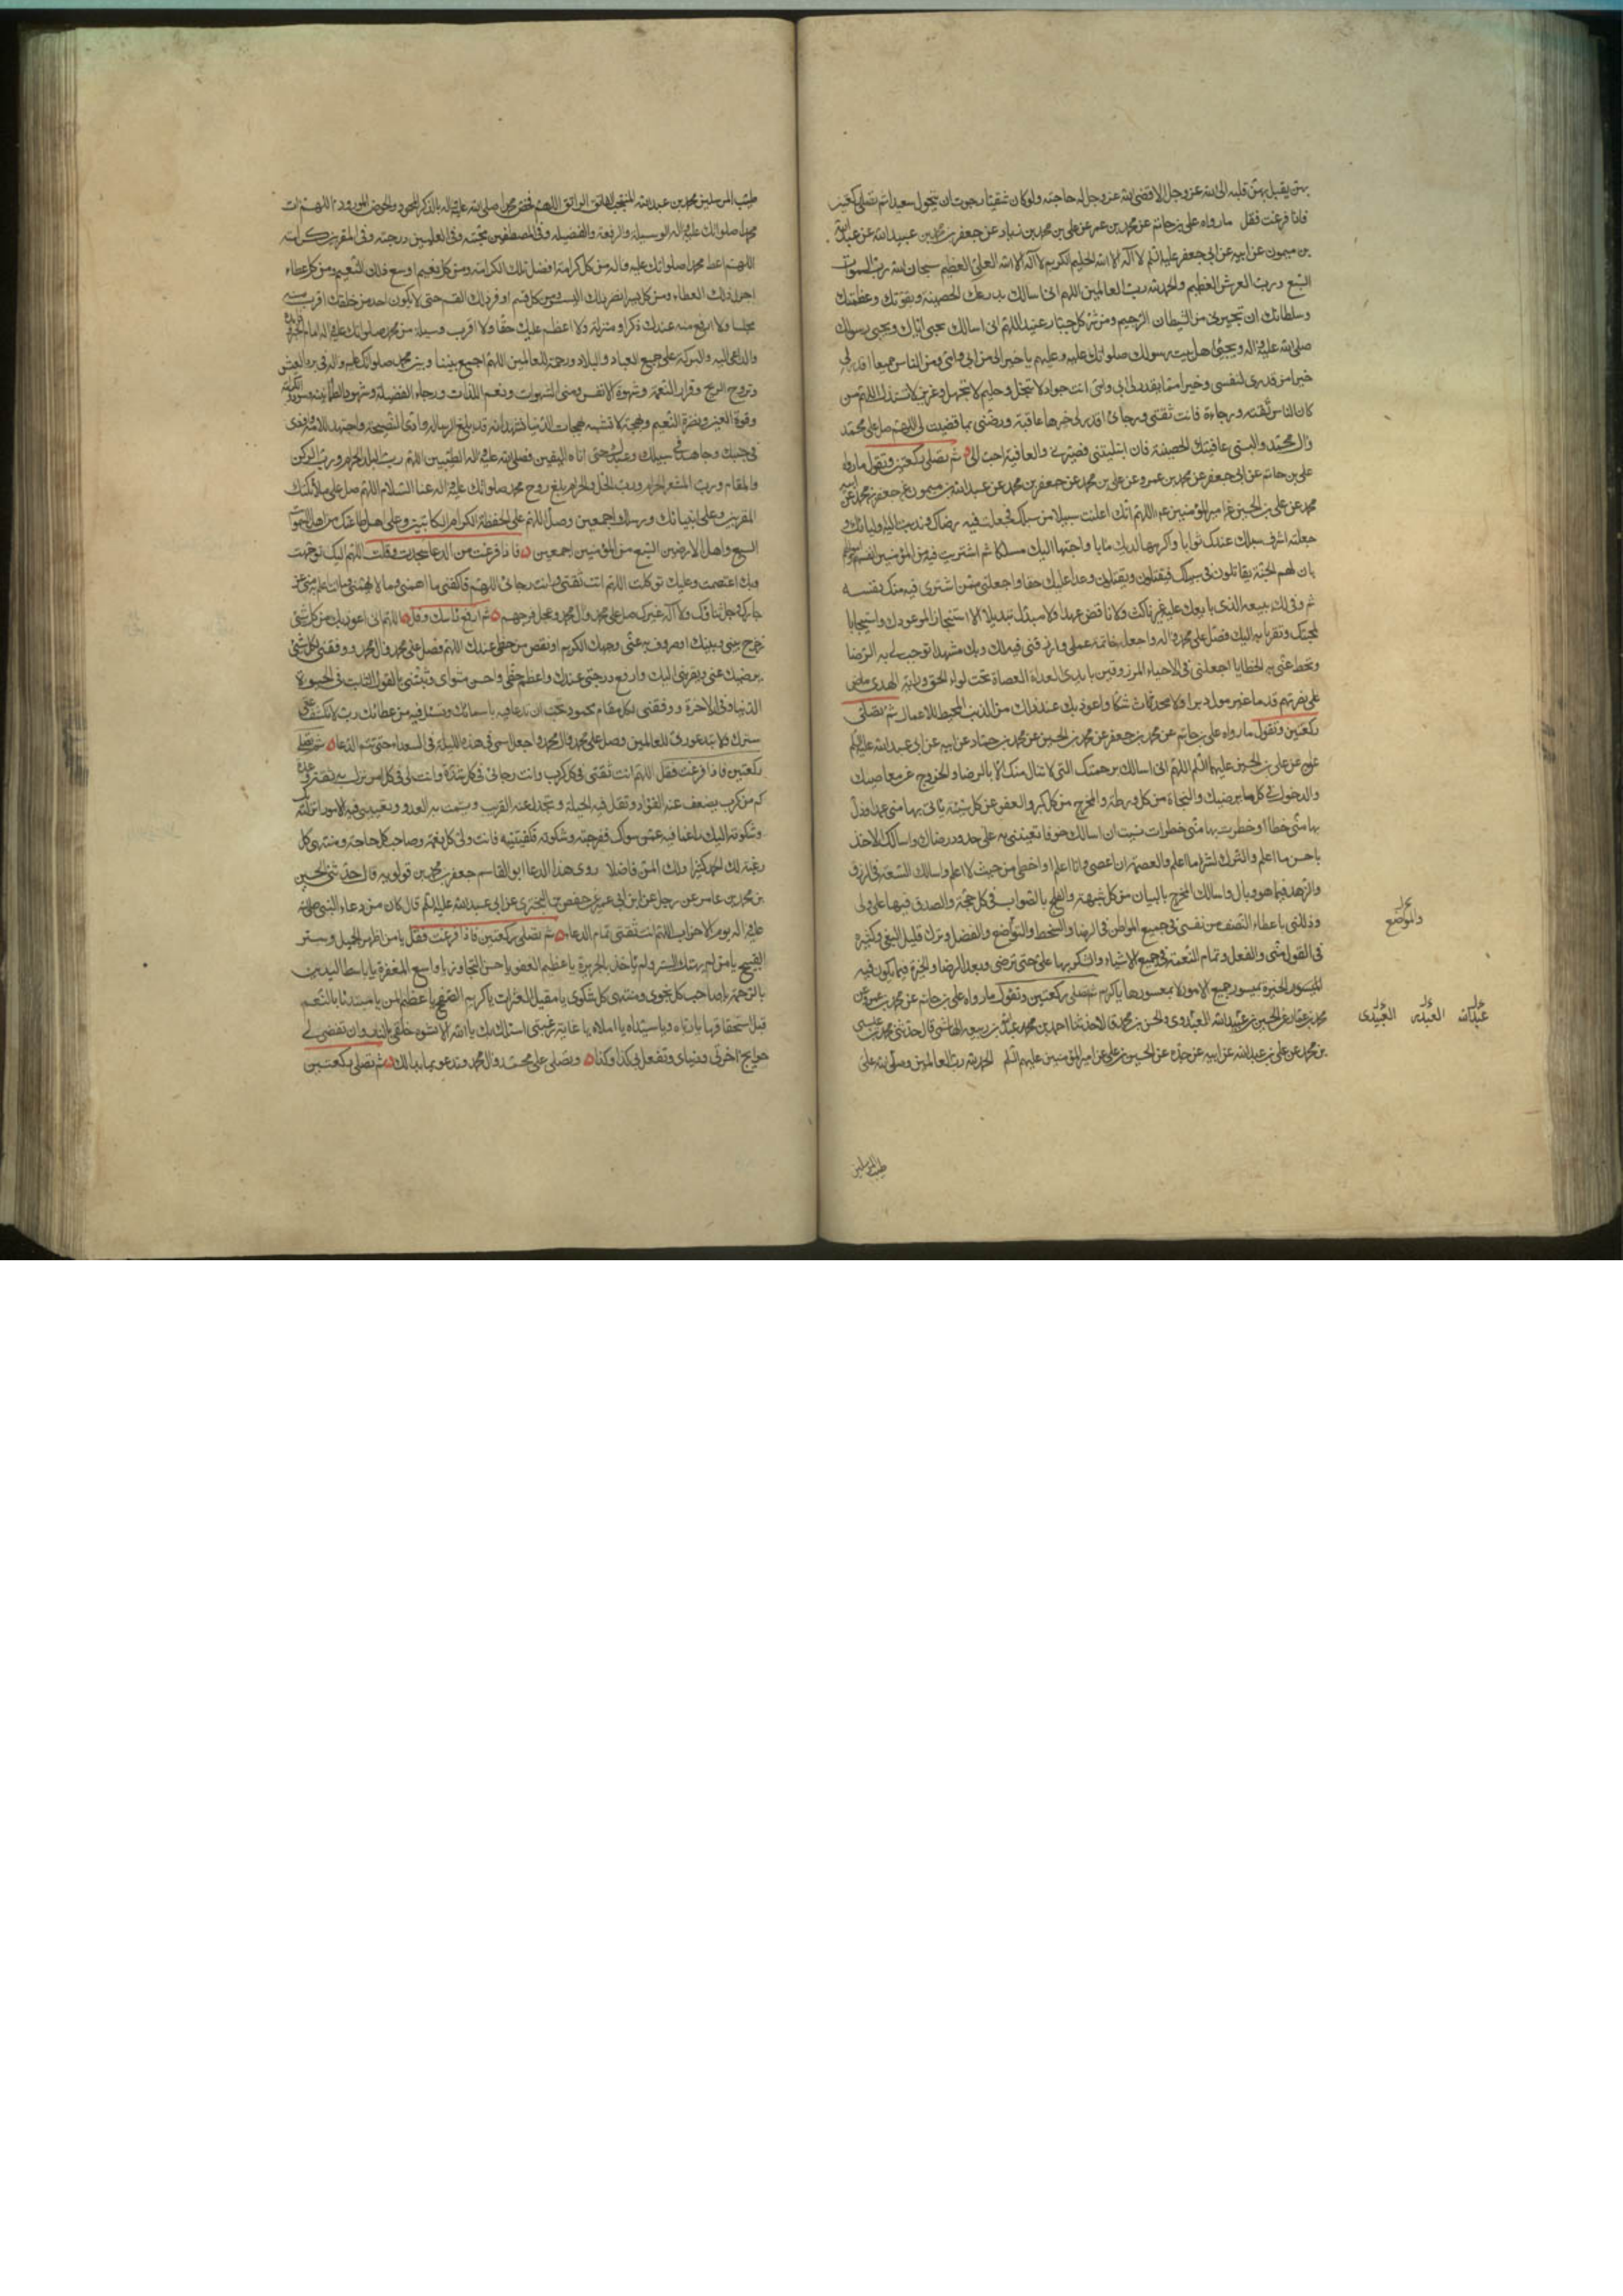 بهن يقبل بهن قلبه الى الله عز وجل الا قضى الله عز وجل له حاجته ولو كان شقيا رجوت ان يتحول سعيدا ثم تصلى ركعتين
فاذا فرغت فقل ما رواه على بن حاتم عن محمد بن عمر عن على بن محمد بن زياد عن جعفر بن محمد بن عبيد الله عن عبد الله
بن ميمون عن ابيه عن ابى جعفر عليه السلم لا اله الا الله الحليم الكريم لا اله الا الله العلى العظيم سبحان الله رب السموات
السبع ورب العرش العظيم والحمد لله رب العالمين اللهم انى اسالك بدرعك الحصينة وبقوتك وعظمتك
وسلطانك ان تجيرنى من الشيطان الرجيم ومن شر كل جبار عنيد اللهم انى اسالك بحبى اياك وبحبى رسولك
صلى الله عليه واله وبحبى اهل بيت رسولك صلواتك عليه وعليهم يا خيرا لى من ابى وامى ومن الناس جميعا اقدر لى
خيرا من قدرى لنفسى وخيرا مما يقدر لى ابى وامى انت جواد لا تبخل وحليم لا تجهل وعزيز لا تستذل اللهم من
كان الناس ثقته ورجاءه فانت ثقتى ورجائى اقدر لى خيرها عاقبة ورضنى بما قضيت لى اللهم صل على محمد
وال محمد والبسنى عافيتك الحصينة فان ابتليتنى فصبرنى والعافية احب الى ثم تصلى ركعتين وتقول ما رواه
على بن حاتم عن ابى جعفر عن محمد بن عمرو عن على بن محمد عن جعفر بن محمد عن عبد الله بن ميمون عن جعفر بن محمد عن ابيه
محمد عن على بن الحسين عن امير المؤمنين عم اللهم انك اعلنت سبيلا من سبلك فجعلت فيه رضاك وندبت اليه اولياءك و
جعلته اشرف سبلك عندك ثوابا واكرمها لديك مابا واحبها اليك مسلكا ثم اشتريت فيه من المؤمنين انفسهم واموالهم
بان لهم الجنة يقاتلون فى سبيلك فيقتلون ويقتلون وعدا عليك حقا واجعلنى ممن اشترى فيه منك نفسه
ثم وفى لك ببيعه الذى بايعك عليه غير ناكث ولا ناقض عهدا ولا مبدل تبديلا الا استنجازا لموعودك واستيجابا
لمحبتك وتقربا به اليك فصل على محمد واله واجعله خاتمة عملى وارزقنى فيه لك وبك مشهدا توجب لى به الرضا
وتحط عنى به الخطايا اجعلنى فى الاحياء المرزوقين بايدى العداة العصاة تحت لواء الحق وراية الهدى ماض
على نصرتهم قدما غير مول دبرا ولا محدث شكا واعوذ بك عند ذلك من الذنب المحبط للاعمال ثم تصلى
ركعتين وتقول ما رواه على بن حاتم عن محمد بن جعفر عن محمد بن الحسين عن محمد بن حماد عن ابيه عن ابى عبد الله عليه السلم
عن على بن الحسين عليهما السلم اللهم انى اسالك برحمتك التى لا تنال منك الا بالرضا والخروج عن معاصيك
والدخول فى كل ما يرضيك والنجاة من كل ورطة والمخرج من كل كبر والعفو عن كل سيئة ياتى بها منى عمد او زل
بها منى خطأ او خطرت بها منى خطرات نسيت ان اسالك خوفا تعيننى به على حدود رضاك واسالك الاخذ
باحسن ما اعلم والترك لشر ما اعلم والعصمة من ان اعصى وانا اعلم او اخطئ من حيث لا اعلم واسالك السعة فى الرزق
والزهد فيما هو وبال واسالك المخرج بالبيان من كل شبهة والفلج بالصواب فى كل حجة والصدق فيها على ولى
وذللنى باعطاء النصف من نفسى فى جميع المواطن فى الرضا والسخط والتواضع والفضل وترك قليل البغى وكثيره
فى القول منى والفعل وتمام النعمة فى جميع الاشياء والشكر بها على حتى ترضى وبعد الرضا والخيرة فيما يكون فيه
الخيرة بميسور جميع الامور لا بمعسورها يا كريم ثم تصلى ركعتين وتقول ما رواه على بن حاتم عن محمد بن عمرو عن
محمد بن عمار عن الحسين بن عبيد الله العبدوى والحسن بن محمد قالا حدثنا احمد بن محمد عبد الله بن ربيعه الهاشمى قال حدثنى محمد بن عيسى
بن محمد عن على بن عبد الله عن ابيه عن جده عن الحسين بن على عن امير المؤمنين عليهم السلم الحمد لله رب العالمين وصلى الله على
والموضع
عبد الله العبدى العبيدى
طيب المرسلين
طيب المرسلين محمد بن عبد الله المنتجب الفاتق الراتق اللهم فخص محمدا صلى الله عليه واله بالذكر المحمود والحوض المورود اللهم ات
محمدا صلواتك عليه واله الوسيلة والرفعة والفضيلة وفى المصطفين محبته وفى العليين درجته وفى المقربين كرامته
اللهم اعط محمدا صلواتك عليه واله من كل كرامة افضل تلك الكرامة ومن كل نعيم اوسع ذلك النعيم ومن كل عطاء
اجزل ذلك العطاء ومن كل يسر انضر ذلك اليسر ومن كل قسم اوفر ذلك القسم حتى لا يكون احد من خلقك اقرب منه
مجلسا ولا ارفع منه عندك ذكرا ومنزلة ولا اعظم عليك حقا ولا اقرب وسيلة من محمد صلواتك عليه واله امام الخير وقائده
والداعى اليه والبركة على جميع العباد والبلاد ورحمة للعالمين اللهم اجمع بيننا وبين محمد صلواتك عليه واله فى برد العيش
وتروح الروح وقرار النعمة وشهوة الانفس ومنى الشهوات ونعم اللذات ورجاء الفضيلة وشهود الطمأنينة وسودد الكرامة
وقرة العين ونضرة النعيم وبهجة لا تشبه بهجات الدنيا نشهد انه قد بلغ الرسالة وادى النصيحة واجتهد للامة واوذى
فى جنبك وجاهد فى سبيلك وعبدك حتى اتاه اليقين فصلى الله عليه واله الطيبين اللهم رب البلد الحرام ورب الركن
والمقام ورب المشعر الحرام ورب الحل والحرام بلغ روح محمد صلواتك عليه واله عنا السلام اللهم صل على ملائكتك
المقربين وعلى انبيائك ورسلك اجمعين وصل اللهم على الحفظة الكرام الكاتبين وعلى اهل طاعتك من اهل السموات
السبع واهل الارضين السبع من المؤمنين اجمعين فاذا فرغت من الدعا سجدت وقلت اللهم اليك توجهت
وبك اعتصمت وعليك توكلت اللهم انت ثقتى وانت رجائى اللهم فاكفنى ما اهمنى وما لا يهمنى وما انت اعلم به منى عز
جارك وجل ثناؤك ولا اله غيرك صل على محمد وال محمد وعجل فرجهم ثم ارفع راسك وقل اللهم انى اعوذ بك من كل شئ
زحزح بينى وبينك او صرف به عنى وجهك الكريم او نقص من حظى عندك اللهم فصل على محمد وال محمد ووفقنى لكل شئ
يرضيك عنى ويقربنى اليك وارفع درجتى عندك واعظم حظى واحسن مثواى وثبتنى بالقول الثابت فى الحيوة
الدنيا وفى الاخرة ووفقنى لكل مقام محمود تحب ان تدعا فيه باسمائك وتسئل فيه من عطائك رب لا تكشف عنى
سترك ولا تبد عورتى للعالمين وصل على محمد وال محمد واجعل اسمى فى هذه الليلة فى السعداء حتى تتم الدعا ثم تصلى
ركعتين فاذا فرغت فقل اللهم انت ثقتى فى كل كرب وانت رجائى فى كل شدة وانت لى فى كل امر نزل بى ثقة وعدة
كم من كرب يضعف عنه الفؤاد وتقل فيه الحيلة ويخذل عنه القريب ويشمت به العدو وتعيينى فيه الامور انزلته
وشكوته اليك راغبا فيه عمن سواك ففرجته وشكوته فكفيتنيه فانت ولى كل نعمة وصاحب كل حاجة ومنتهى كل
رغبة لك الحمد كثيرا ولك المن فاضلا روى هذا الدعا ابو القاسم جعفر بن محمد بن قولويه قال حدثنى الحسين
بن محمد بن عامر عن رجل عن ابن ابى عمير عن حفص بن البخترى عن ابى عبد الله عليه السلم قال كان من دعاء النبى صلى الله
عليه واله يوم الاحزاب اللهم انت ثقتى تمام الدعا ثم تصلى ركعتين فاذا فرغت فقل يا من اظهر الجميل وستر
القبيح يا من لم يهتك الستر ولم ياخذ بالجريرة يا عظيم العفو يا حسن التجاوز يا واسع المغفرة يا باسط اليدين
بالرحمة يا صاحب كل نجوى ومنتهى كل شكوى يا مقيل العثرات يا كريم الصفح يا عظيم المن يا مبتدئا بالنعم
قبل استحقاقها يا رباه ويا سيداه يا املاه يا غاية رغبتى اسالك بك يا الله الا تشوه خلقى بالنار وان تقضى لى
حوايج اخرتى ودنياى وتفعل بى كذا وكذا وتصلى على محمد وال محمد وتدعو بما بدا لك ثم تصلى ركعتين